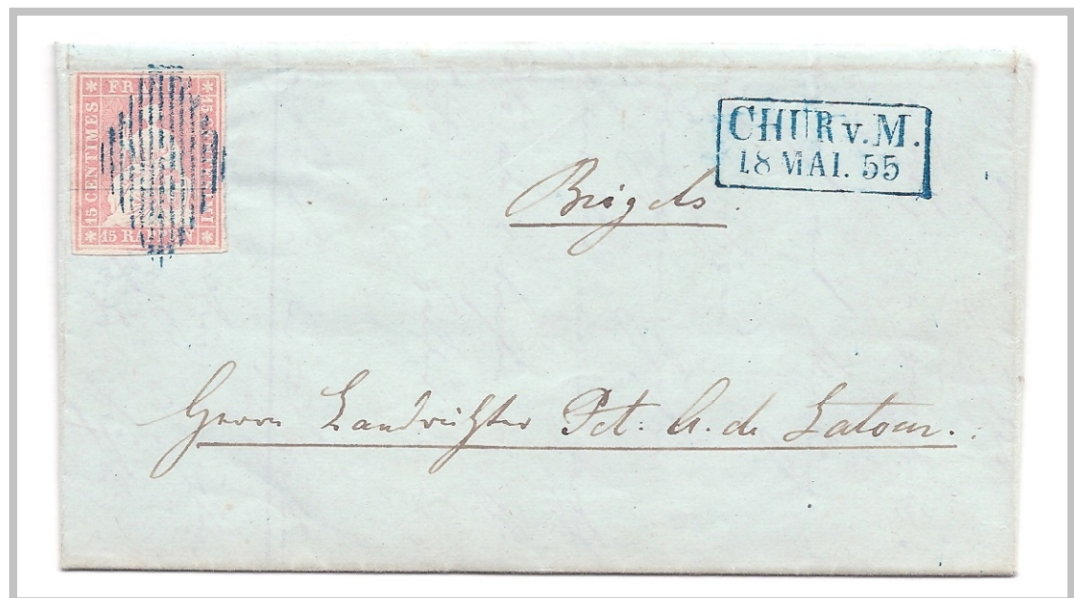 FR
15 CENTIMES
15 RAPPEN
CHUR v. M.
18 MAI. 55
Brigels.
Herrn Landrichter Pet: A. de Latour.